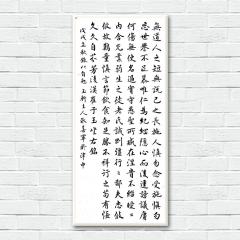 無道人之短無說己之長施人慎勿念受施慎勿
忘世譽不足慕唯仁為紀綱隱心而後動謗議庸
何傷無使名過實守愚聖所臧在涅貴不緇曖曖
內含光柔弱生之徒老氏誡剛強行行鄙夫志悠
悠故難量慎言節飲食知足勝不祥行之苟有恆
久久自芬芳後漢崔子玉座右銘
戊戌立秋錄